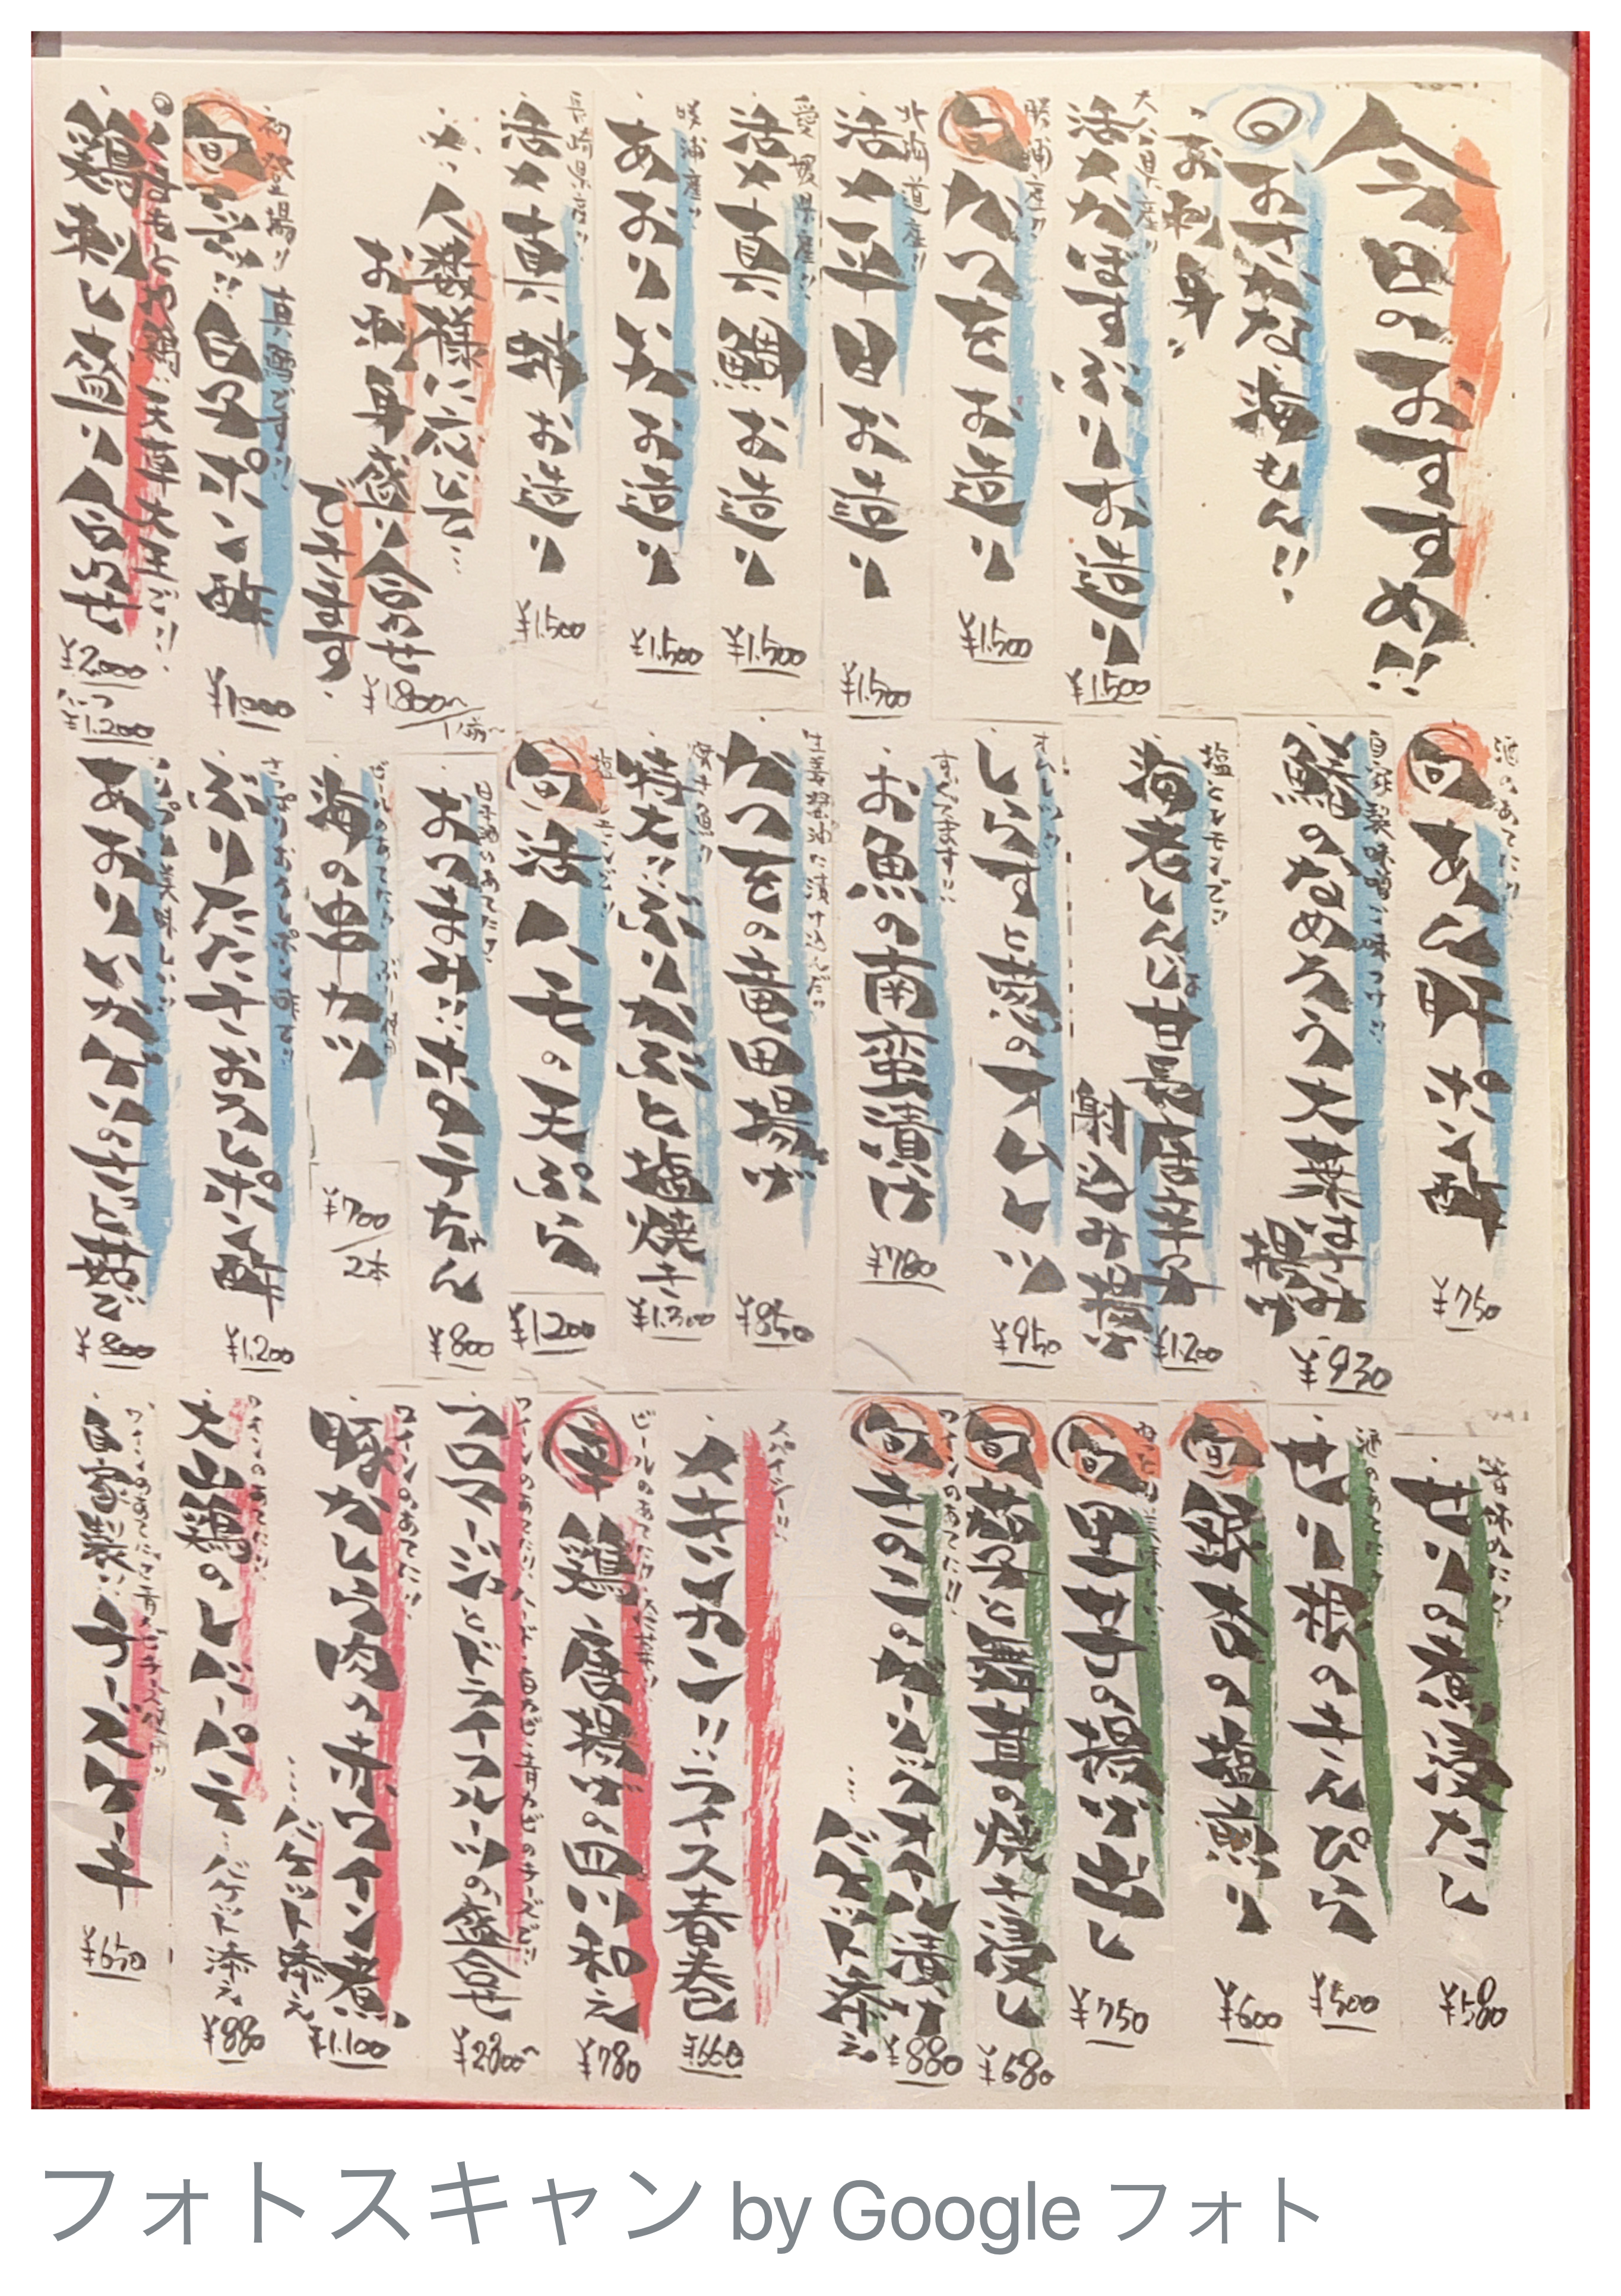 今日のおすすめ!!
おさかな海もん!!
お刺身
大分県産!!
活〆かぼすぶりお造り
¥1.500
勝浦産!!
旬 かつをお造り
¥1.500
北海道産!!
活〆平目お造り
¥1.500
愛媛県産!!
活〆真鯛お造り
¥1.500
あおりいかお造り
¥1.500
長崎県産!!
活〆真蛸お造り
¥1.500
人数様に応じて…
お刺身盛り合わせ
できます
¥1.800〜/1人前〜
初登場!! 真鱈です!!
旬 白子ポン酢
¥1.000
天草大王
鶏刺し盛り合わせ
¥2.000
¥1.200
酒のあてに!!
旬 あん肝ポン酢
¥750
自家製味噌で味つけ!!
鯵のなめろう大葉はさみ
揚げ
¥930
塩とレモンで!!
海老しんじょ甘長唐辛子
射込み揚げ
¥1.200
しらすと葱のオムレツ
¥950
お魚の南蛮漬け
¥780
生姜醤油に漬け込んだ!!
かつをの竜田揚げ
¥850
焼き魚!!
特大!!ぶりかぶと塩焼き
¥1.300
旬 活ハモの天ぷら
¥1.200
おつまみ!!ホタテちゃん
¥800
海の串カツ
¥700/2本
さっぱりおろしポン酢で!!
ぶりたたきおろしポン酢
¥1.200
あおりいかげりのきび麹で
¥800
せりの煮浸たし
¥580
酒のあてに!!
せり根のきんぴら
¥500
旬 銀杏の塩煎り
¥600
旬 里芋の揚げ出し
¥750
旬 茄子と舞茸の焼き浸し
¥680
ワインのあてに!!
旬 きのこのガーリックオイル漬け
…バゲット添え
¥880
スパイシー!!
メキシカン!!ライス春巻
¥660
ビールのあてに!!
辛 鶏唐揚げの四川和え
¥780
フロマージュとドライフルーツの盛合せ
¥2800〜
ワインのあてに!!
豚かしら肉の赤ワイン煮
…バゲット添え
¥1.100
ワインのあてに!!
大山鶏のレバーパテ
…バゲット添え
¥880
自家製!!チーズケーキ
¥650
フォトスキャン by Google フォト